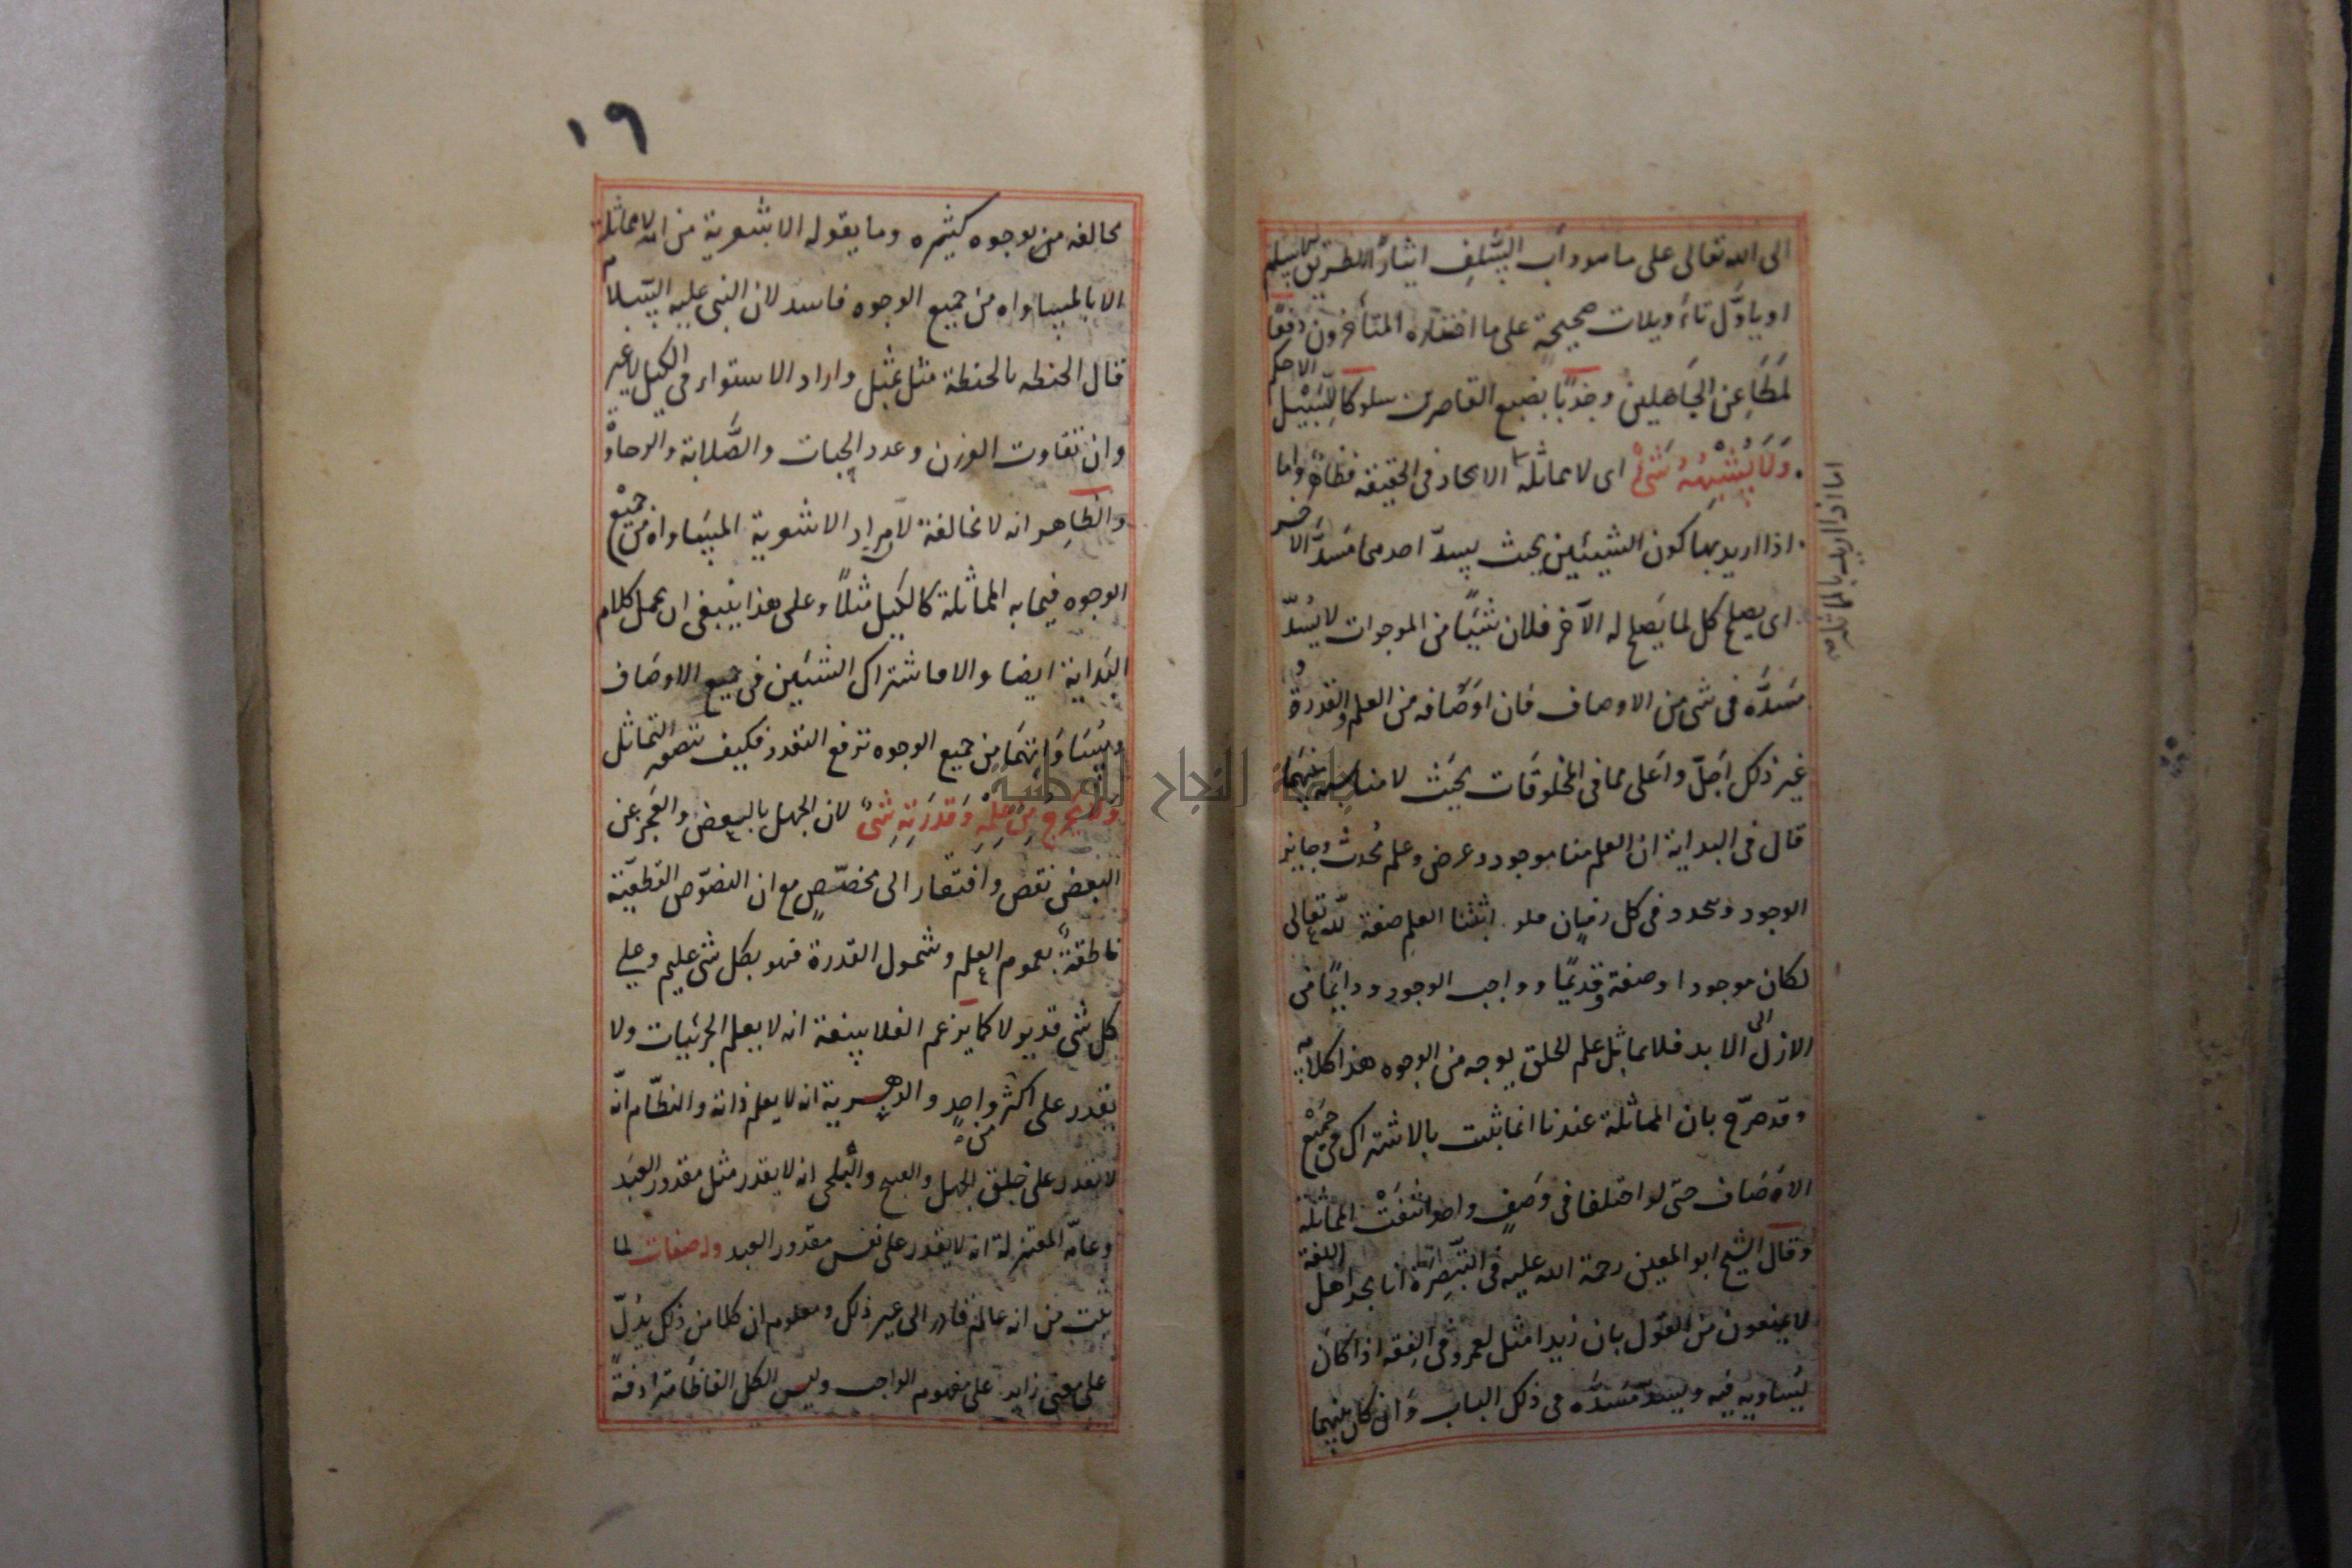 الى الله تعالى على ما هو دأب السَّلف ايثارًا للطريق الاسلم
او ياوَّل تاءويلات صحيحة على ما اختاره المتأخرون دفعًا
لمطاعن الجاهلين وجذبًا بضبع القاصرين سلوكا للسَّبيل الاحكم
وَلَا يُشْبِهُهُ شَىْءٌ اى لا يماثله اما الاتحاد فى الحقيقه فظاهر واما
اذا اريد بها كون الشيئين بحيث يسدّ احدهما مسدَّ الاخر
اى يصلح كل لما يصلح له الآخر فلان شيئًا من الموجوات لا يسُدّ
مسَدَّه فى شى من الاوصاف فان اوصافه من العلم والقدرة و
غير ذلك اجَلّ واعلى مما فى المخلوقات بحيث لا مناسبة بينهما
قال فى البداية ان العلم منا موجود وعرض وعلم مُحدث وجايز
الوجود ومحدد فى كل زمان فلو اثبتنا العلم صفة لله تعالى
لكان موجودا وصفة وقديمًا وواجب الوجود ودايمًا من
الازل الى الابد فلا يماثل علم الخلق بوجه من الوجوه هذا كلامه
وقد صرّح بان المماثلة عندنا انما يثبت بالاشتراك فى جميع
الاوصاف حتى لو اختلفا فى وصف واحد انتفت المماثلة
وقال الشيخ ابو المعين رحمة الله عليه فى التبصرة انا نجد اهل اللغة
لا يمنعون من القول بان زيدا مثل لعمرو فى الفقه اذا كان
يساويه فيه ويسدّ مسَدَّه فى ذلك الباب وان كان بينهما
١٦
مخالفه من بوجوه كثيره وما يقوله الاشعرية من انه لا مماثلة
الا بالمساواه من جميع الوجوه فاسد لان النبى عليه السّلام
قال الحنطه بالحنطة مثل بمثل واراد الاستواء فى الكيل لا غير
وان تفاوت الوزن وعدد الحبات والصَّلابة والرخاوة
والظاهر انه لا مخالفة لان مراد الاشعرية المساواه من جميع
الوجوه فيما به المماثلة كالكيل مثلاً وعلى هذا ينبغى ان يحمل كلام
البداية ايضا والا فاشتراك الشيئين فى جميع الاوصاف
ومساواتهما من جميع الوجوه ترفع التعدد فكيف تتصور التماثل
وَلَا يَخْرُجُ مِنْ عِلْمِهِ وَقُدْرَتِهِ شىءٌ لان الجهل بالبعض والعجز عن
البعض نقص وافتقار الى مخصّصٍ مع ان النصوص القطعيّة
ناطقة بعموم العلم وشمول القدرة فهو بكل شى عليم وعلى
كل شى قدير لا كما يزعم الفلاسفة انه لا يعلم الجزئيات ولا
يقدر على اكثر من واحد والدهرية انه لا يعلم ذاته والنظّام انّه
لا يقدر على خلق الجهل والقبح والبلخى انه لا يقدر مثل مقدور العبد
وعامّه المعتزلة انه لا يقدر على نفس مقدور العبد وله صفات لما
ثبت من انه عالم قادر الى غير ذلك ومعلوم ان كلا من ذلك يدُلّ
على معنى زايد على مفهوم الواجب وليس الكل الفاظا مترادفةً
جامعة النجاح الوطنية